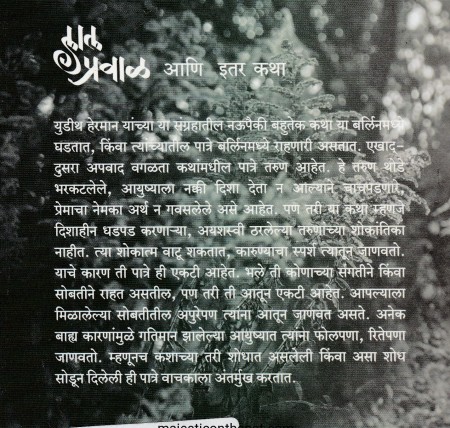 लाल
प्रवाळ आणि इतर कथा
युडीथ हेरमान यांच्या या संग्रहातील नऊपैकी बहुतेक कथा या बर्लिनमध्ये
घडतात, किंवा त्यांच्यातील पात्रे बर्लिनमध्ये राहणारी असतात. एखाद-
दुसरा अपवाद वगळता कथांमधील पात्रे तरुण आहेत. हे तरुण थोडे
भरकटलेले, आयुष्याला नक्की दिशा देता न आल्याने चाचपडणारे,
प्रेमाचा नेमका अर्थ न गवसलेले असे आहेत. पण तरी या कथा म्हणजे
दिशाहीन धडपड करणाऱ्या, अयशस्वी ठरलेल्या तरुणांच्या शोकांतिका
नाहीत. त्या शोकात्म वाटू शकतात, कारुण्याचा स्पर्श त्यातून जाणवतो.
याचे कारण ती पात्रे ही एकटी आहेत. भले ती कोणाच्या संगतीने किंवा
सोबतीने राहत असतील, पण तरी ती आतून एकटी आहेत. आपल्याला
मिळालेल्या सोबतीतील अपुरेपण त्यांना आतून जाणवत असते. अनेक
बाह्य कारणांमुळे गतिमान झालेल्या आयुष्यात त्यांना फोलपणा, रितेपणा
जाणवतो. म्हणूनच कशाच्या तरी शोधात असलेली किंवा असा शोध
सोडून दिलेली ही पात्रे वाचकाला अंतर्मुख करतात.